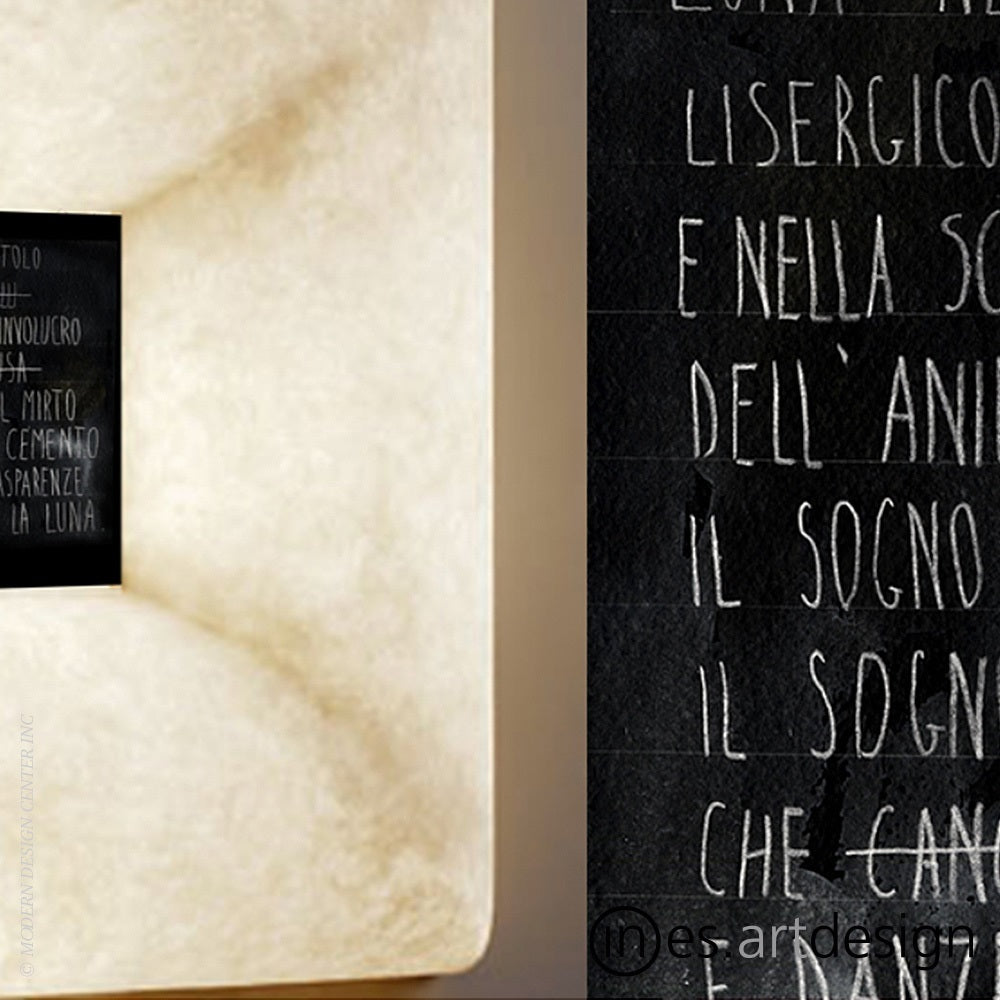 TOLO
INVOLUCRO
L MIRTO
CEMENTO
ASPARENZE
LA LUNA.
© MODERN DESIGN CENTER INC
LUNA NE
LISERGICO
E NELLA SC
DELL'ANI
IL SOGNO
IL SOGN
CHE CANC
E DANZ
in-es.artdesign